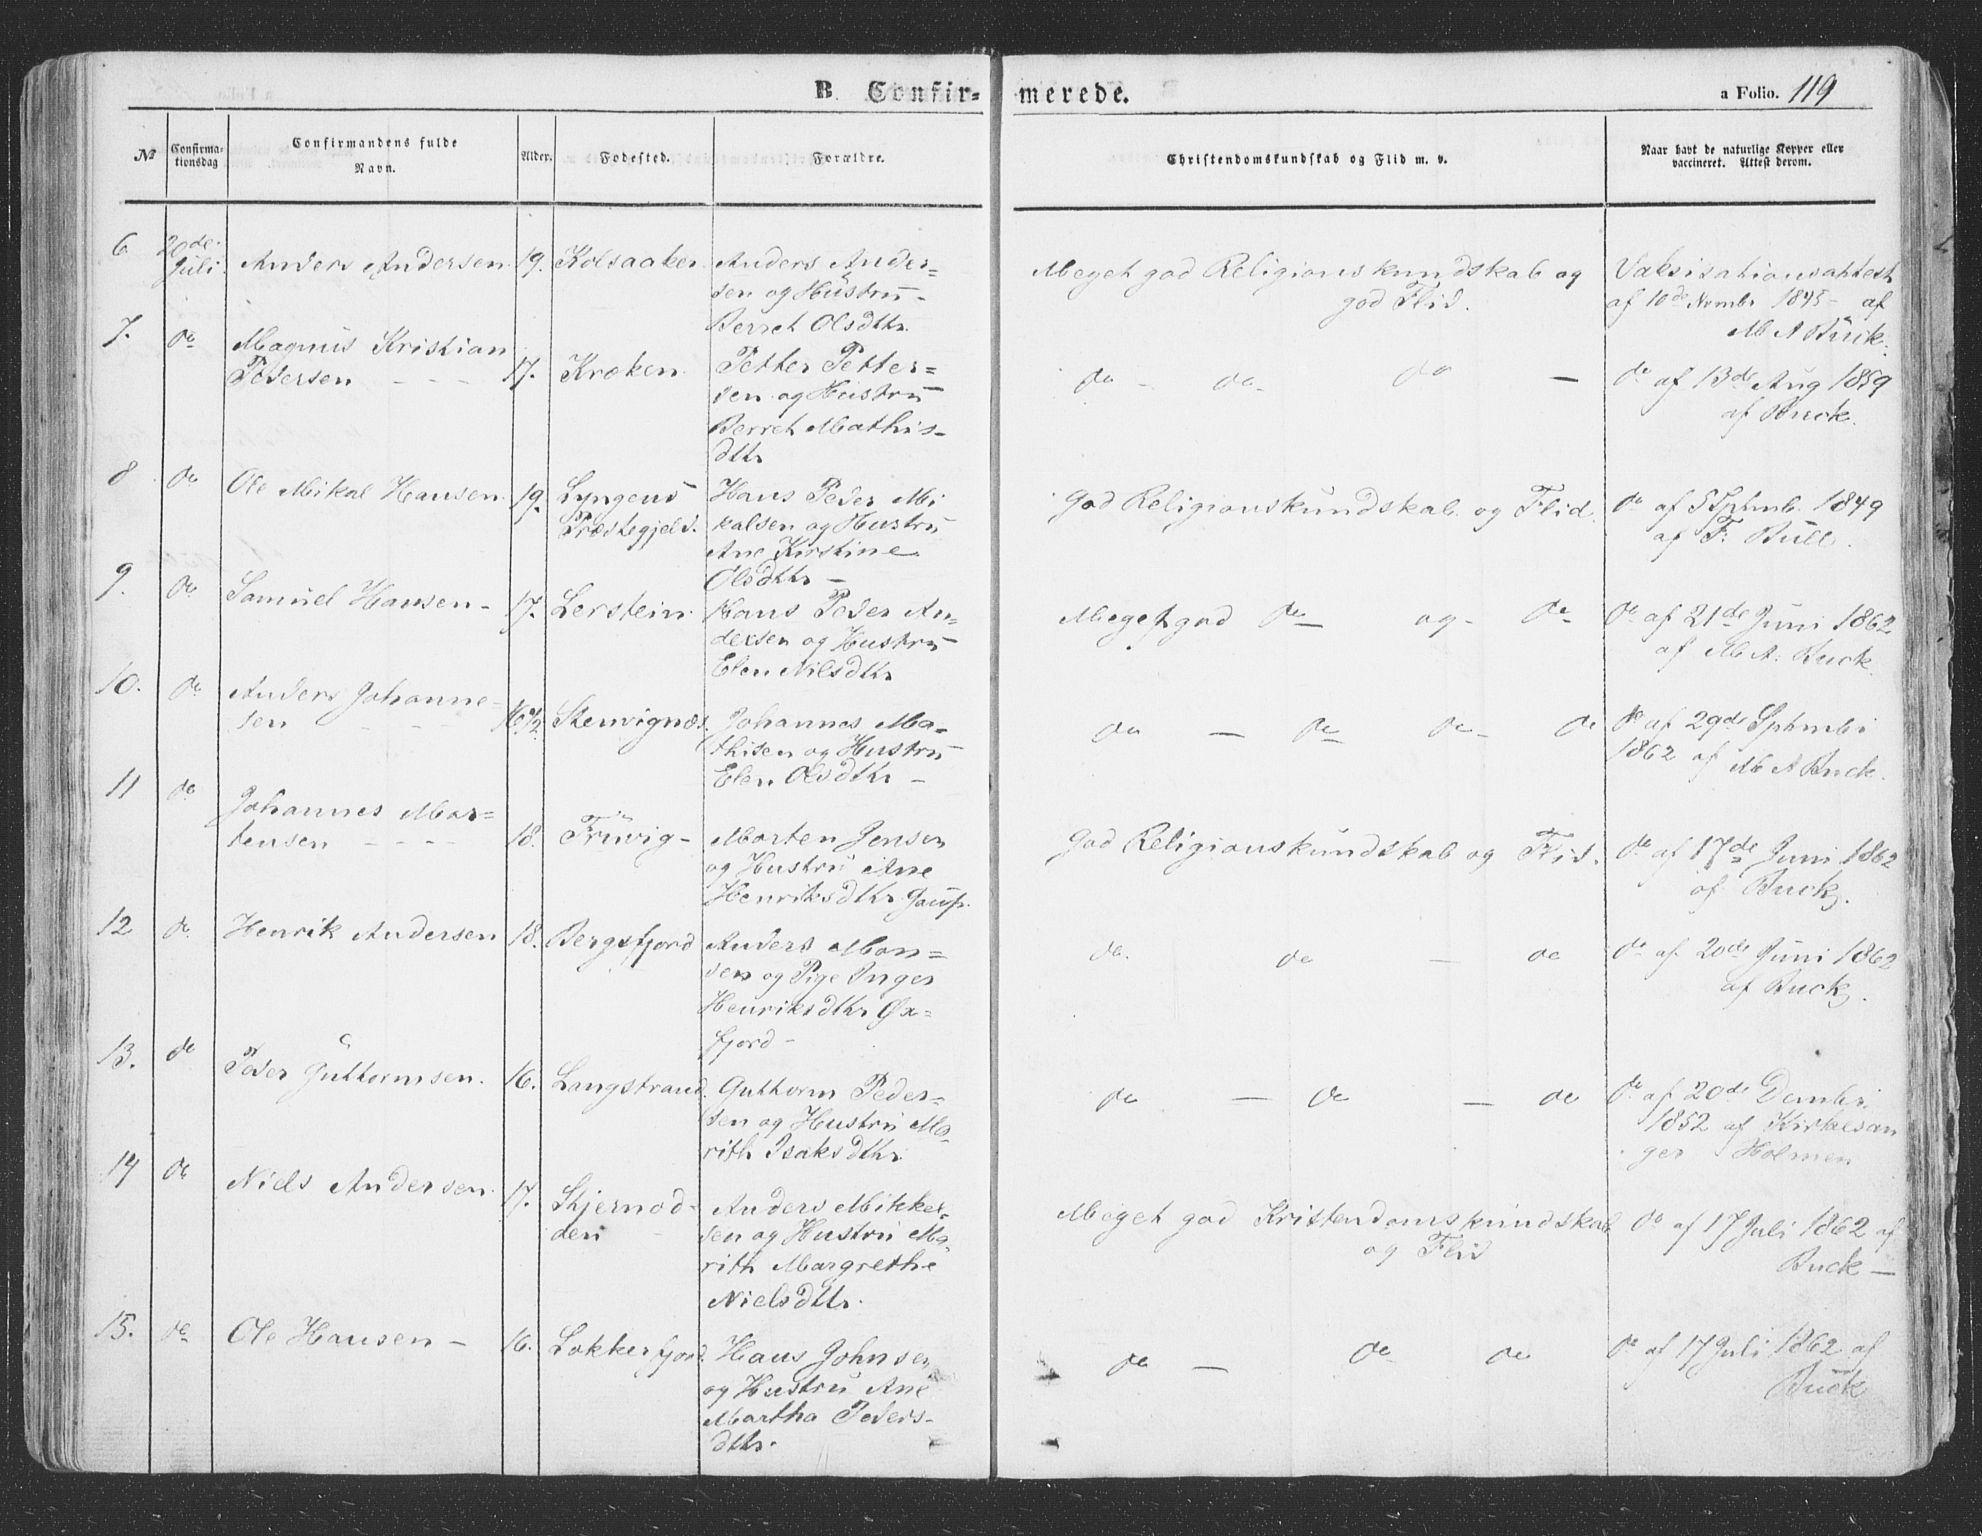 B. Confir-merede. a Folio. 119
№ Confirmationsdag Confirmandens fulde Navn. Alder. Fødested. Forældre. Christendomskundskab og Flid m. v. Naar havt de naturlige Kopper eller vaccineret. Attest derom.
6 20de Juli Anders Andersen 19. Kolsaaker Anders Ander=
sen og Hustru
Berret Olsdtr.
Meget god Religionskundskab og
god Flid.
Vaksisationsattest
af 10de Novmbr 1845 af
M A Buck.
7. do Magnus Kristian
Pedersen 17. Kroken Petter Petter=
sen og Hustru
Berret Mathis-
dtr
do - do - do — do af 13de Aug 1859
af Buck.
8 do Ole Mikal Hansen 19. Lyngens
Præstegjeld. Hans Peder Mi
kalsen og Hustru
Ane Kirstine
Olsdttr —
God Religionskundskab og Flid. do af 5 Sptmb. 1849
af F. Bull.
9. do Samuel Hansen - 17. Lerstein Hans Peder An-
dersen og Hustru
Elen Nilsdtr
Meget god do og - do do af 21de Juni 1862
af M A. Buck
10. do Anders Johanne-
sen 16 1/2 Stenvignæs Johannes Ma-
thisen og Hustru
Elen Olsdtr -
do — do do - do do af 29de Sptmbr
1862 af M A Buck.
11 do Johannes Mor=
tensen - - - - 18. Fruvig - Morten Jensen
og Hustru Ane
Henriksdtr Gaup.
God Religionskundskab og Flid. do af 17de Juni 1862
af Buck.
12 do Henrik Andersen 18. Bergsfjord Anders Mon=
sen og Pige Inger
Henriksdtr Øx=
fjord -
do. do — do do af 20de Juni 1862
af Buck.
13. do Peder Guttormsen. 16. Langstrand. Guttorm Peder-
sen og Hustru Ma-
rith Isaksdtr
do — do — do do af 20de Dembr.
1852 af Kirkesan
ger Holmen
14 do Niels Andersen 17. Skjernod-
den Anders Mikkel-
sen og Hustru Ma-
rith Margrethe
Nielsdtr.
Meget god Kristendomskundskab
og Flid
do af 17 Juli 1862 af
Buck —
15. do Ole Hansen — 16. Lokkerfjord. Hans Johnsen
og Hustru Ane
Martha Peders-
dtr.
do — do do do af 17 Juli 1862 af
Buck